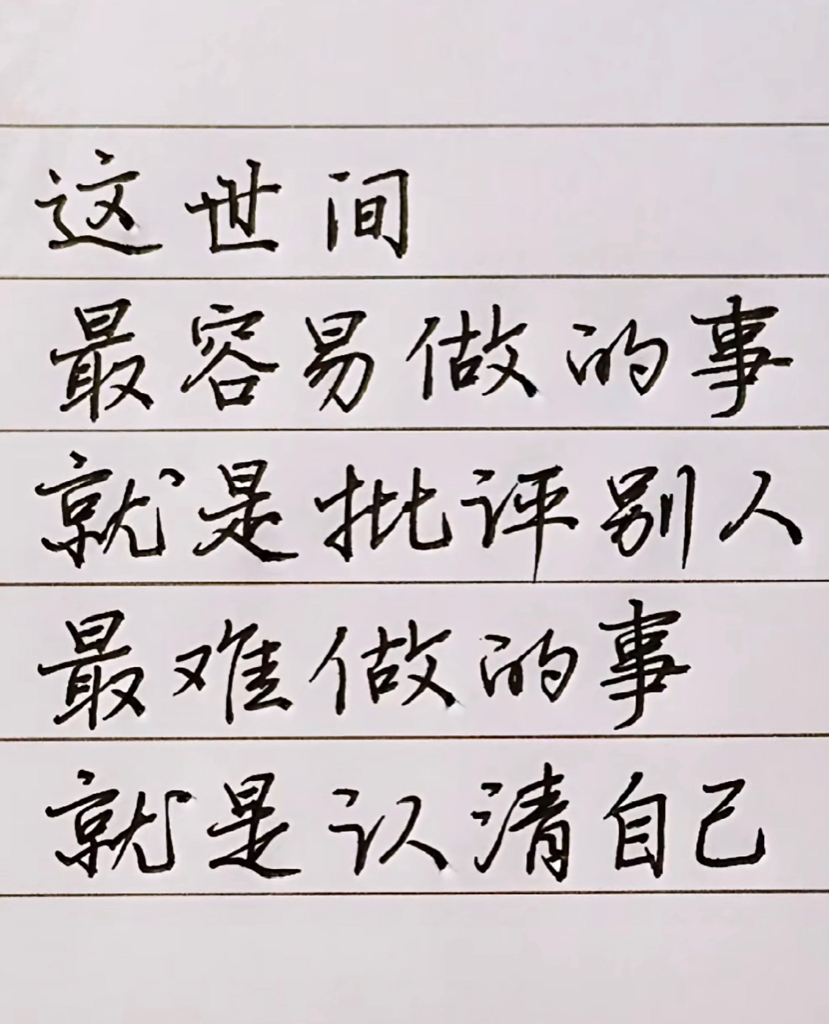 这世间
最容易做的事
就是批评别人
最难做的事
就是认清自己